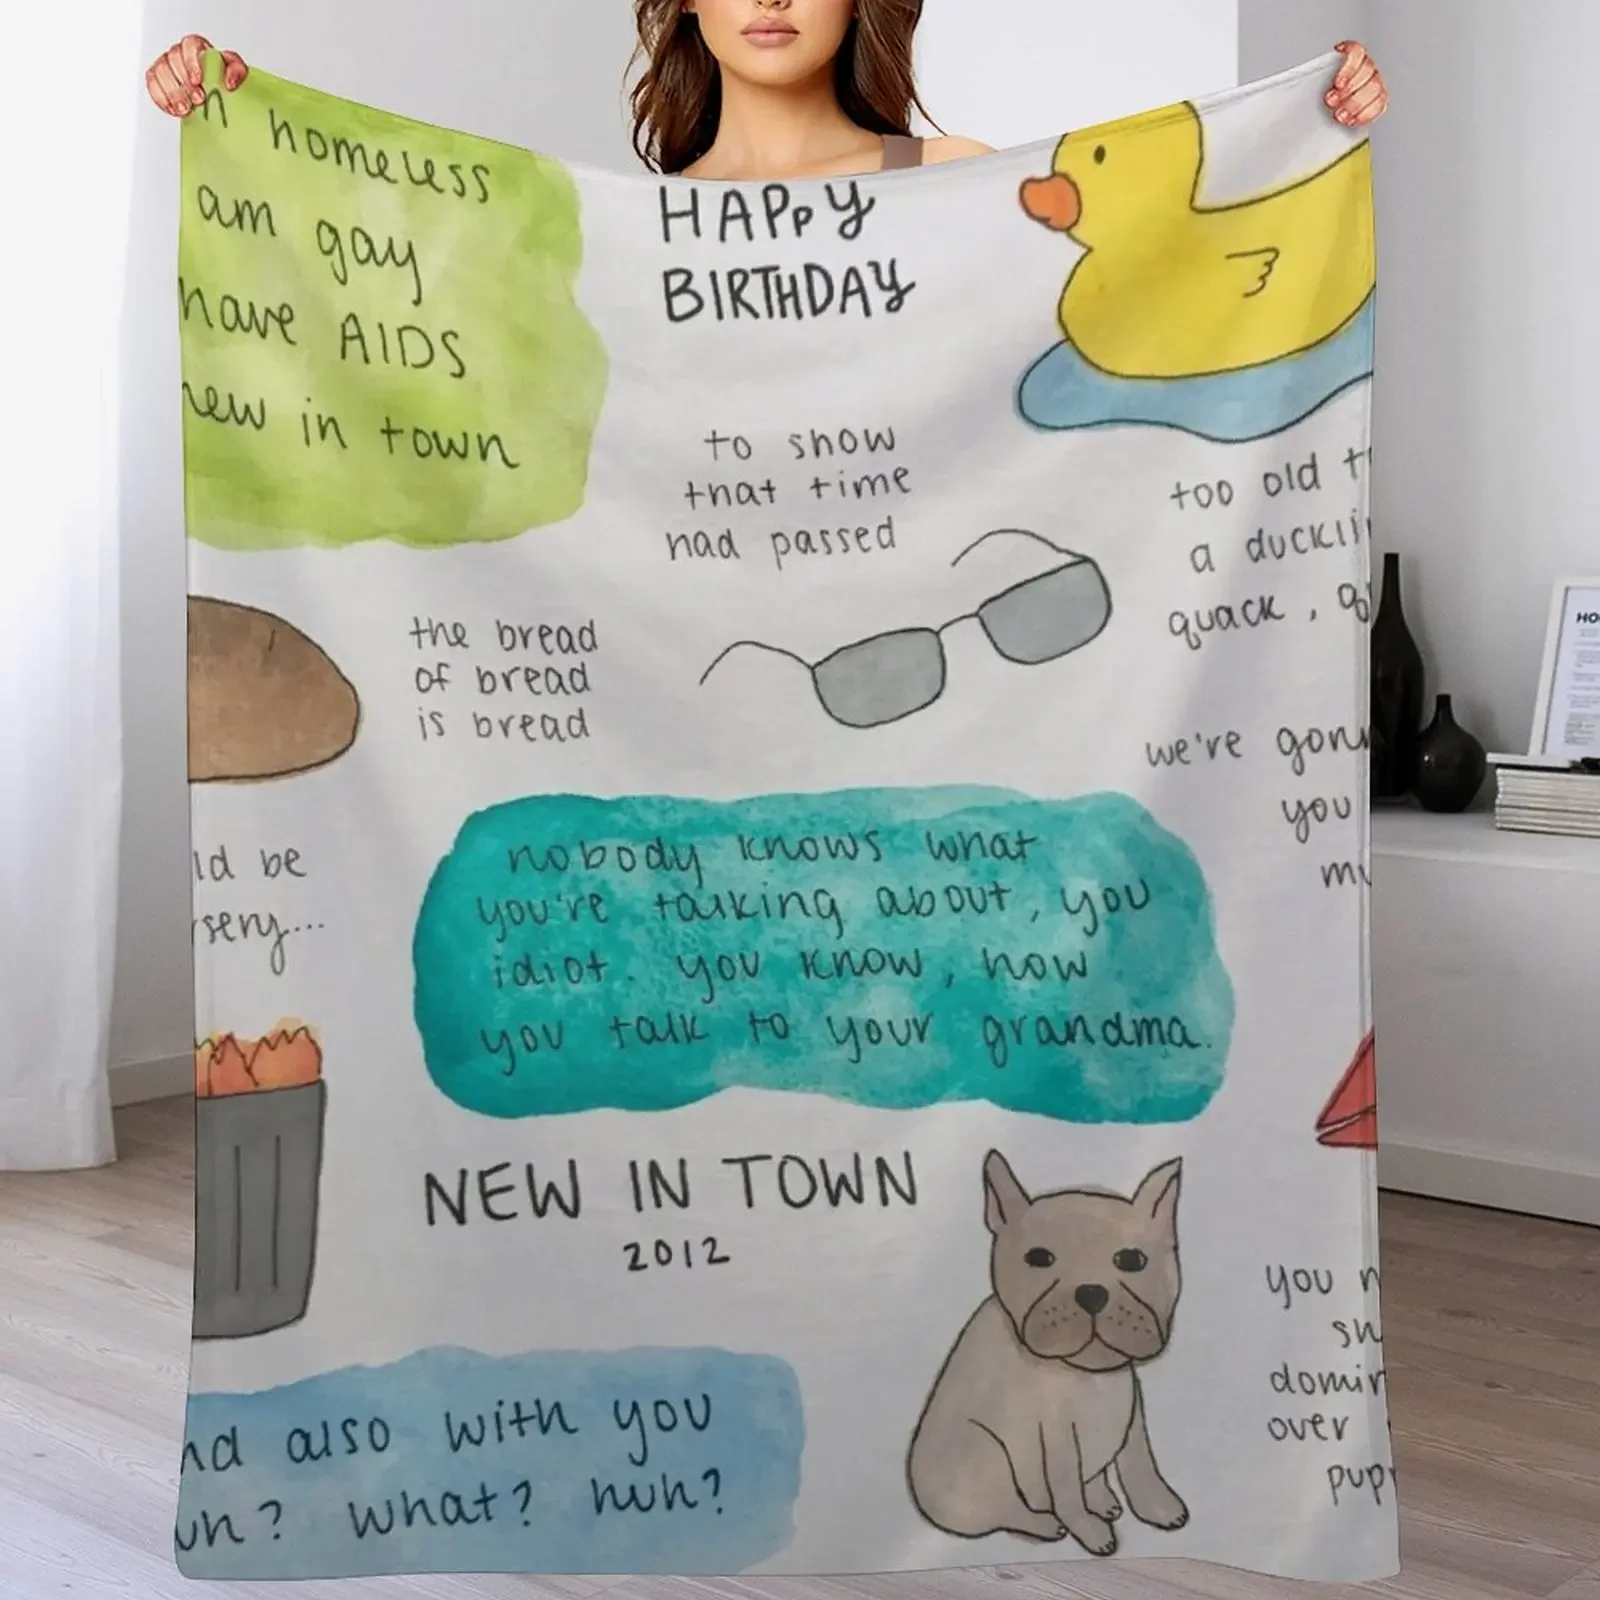 homeless
am gay
have AIDS
new in town
HAPPY
BIRTHDAY
to show
that time
had passed
too old
a
quack,
the bread
of bread
is bread
we're
you
be
nobody knows what
you're talking about, you
idiot. you know, how
you talk to your grandma.
NEW IN TOWN
2012
you
over
also with you
? what? huh?